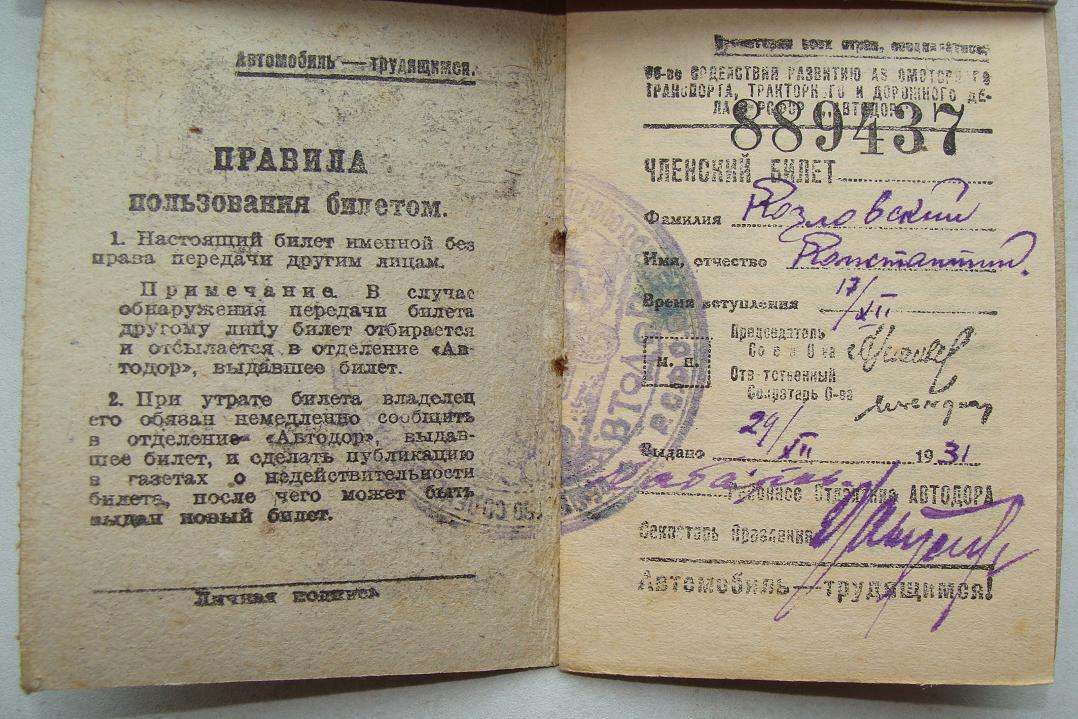 Автомобиль — трудящимся.
ПРАВИЛА
пользования билетом.
1. Настоящий билет именной без
права передачи другим лицам.
Примечание. В случае
обнаружения передачи билета
другому лицу билет отбирается
и отсылается в отделение «Ав-
тодор», выдавшее билет.
2. При утрате билета владелец
его обязан немедленно сообщить
в отделение «Автодор», выдав-
шее билет, и сделать публикацию
в газетах о недействительности
билета, после чего может быть
выдан новый билет.
Личная подпись
Пролетарии всех стран, соединяйтесь!
Об-во СОДЕЙСТВИЯ РАЗВИТИЮ АВТОМОТОРНОГО
ТРАНСПОРТА, ТРАКТОРНОГО И ДОРОЖНОГО ДЕ-
ЛА В РСФСР АВТОДОР
889437
ЧЛЕНСКИЙ БИЛЕТ
Фамилия Козловский
Имя, отчество Константин.
Время вступления 17/XII
Председатель
Совета О-ва
М. П.
Ответственный
Секретарь О-ва
29/XII
Выдано 1931
Районное Отделение АВТОДОРА
Секретарь Правления
Автомобиль — трудящимся!
АВТОДОР
РСФСР